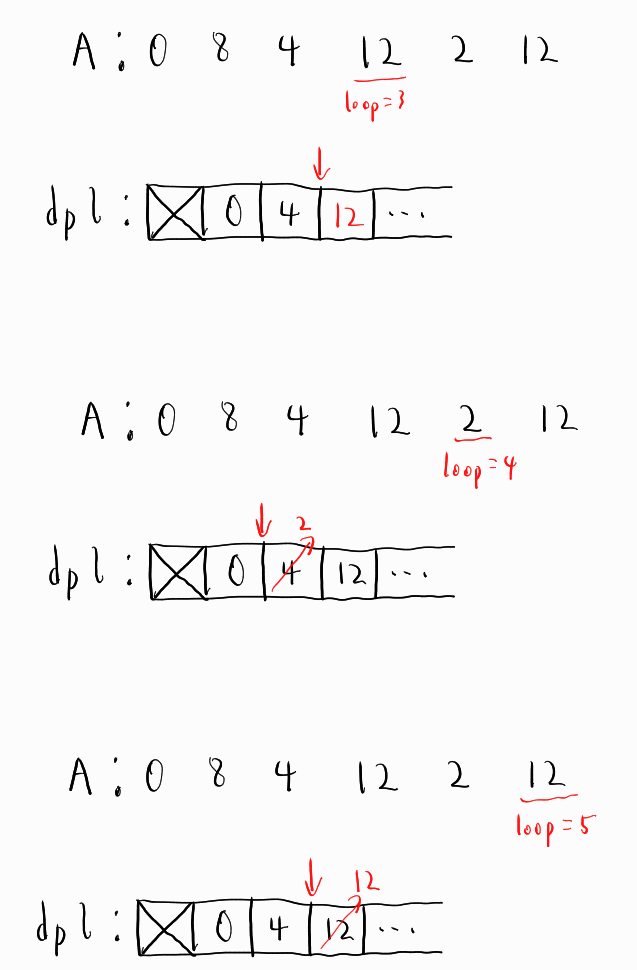 A: 0 8 4 12 2 12
loop=3
dpl: 0 4 12 ...
A: 0 8 4 12 2 12
loop=4
2
dpl: 0 4 12 ...
A: 0 8 4 12 2 12
loop=5
12
dpl: 0 4 12 ...